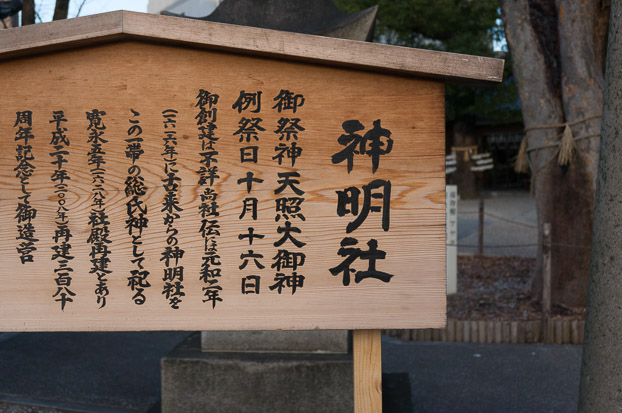 神明社
御祭神天照大御神
例祭日十月十六日
御創建は不詳尚社伝は元和二年
(一六一六年)に古来からの神明社を
この一帯の総氏神として祀る
寛永五年(一六二八年)社殿再建とあり
平成二十年(二〇〇八年)再建三百八十
周年記念として御造営